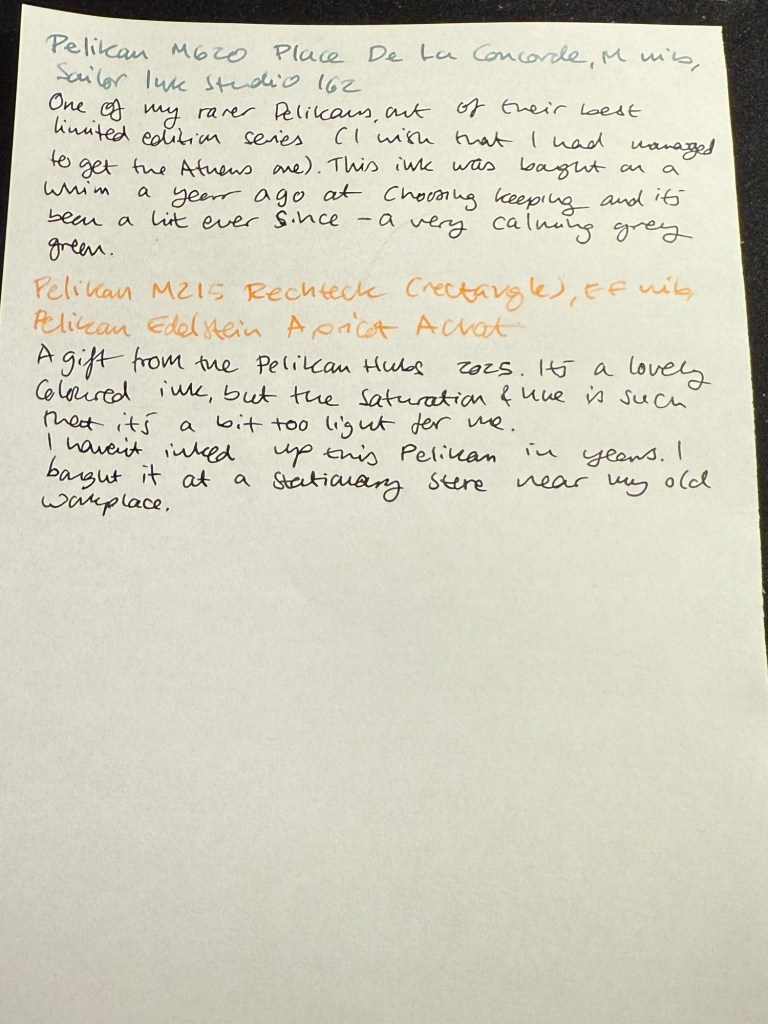 Pelikan M620 Place De La Concorde, M nib,
Sailor Ink Studio 162
One of my rarer Pelikans, out of their best
limited edition series (I wish that I had managed
to get the Athens one). This ink was bought on a
whim a year ago at Choosing Keeping and it's
been a hit ever since - a very calming grey
green.
Pelikan M215 Rechteck (rectangle), EF nib,
Pelikan Edelstein Apricot Achat
A gift from the Pelikan Hubs 2025. It's a lovely
coloured ink, but the saturation & hue is such
that it's a bit too light for me.
I haven't inked up this Pelikan in years. I
bought it at a stationary store near my old
workplace.